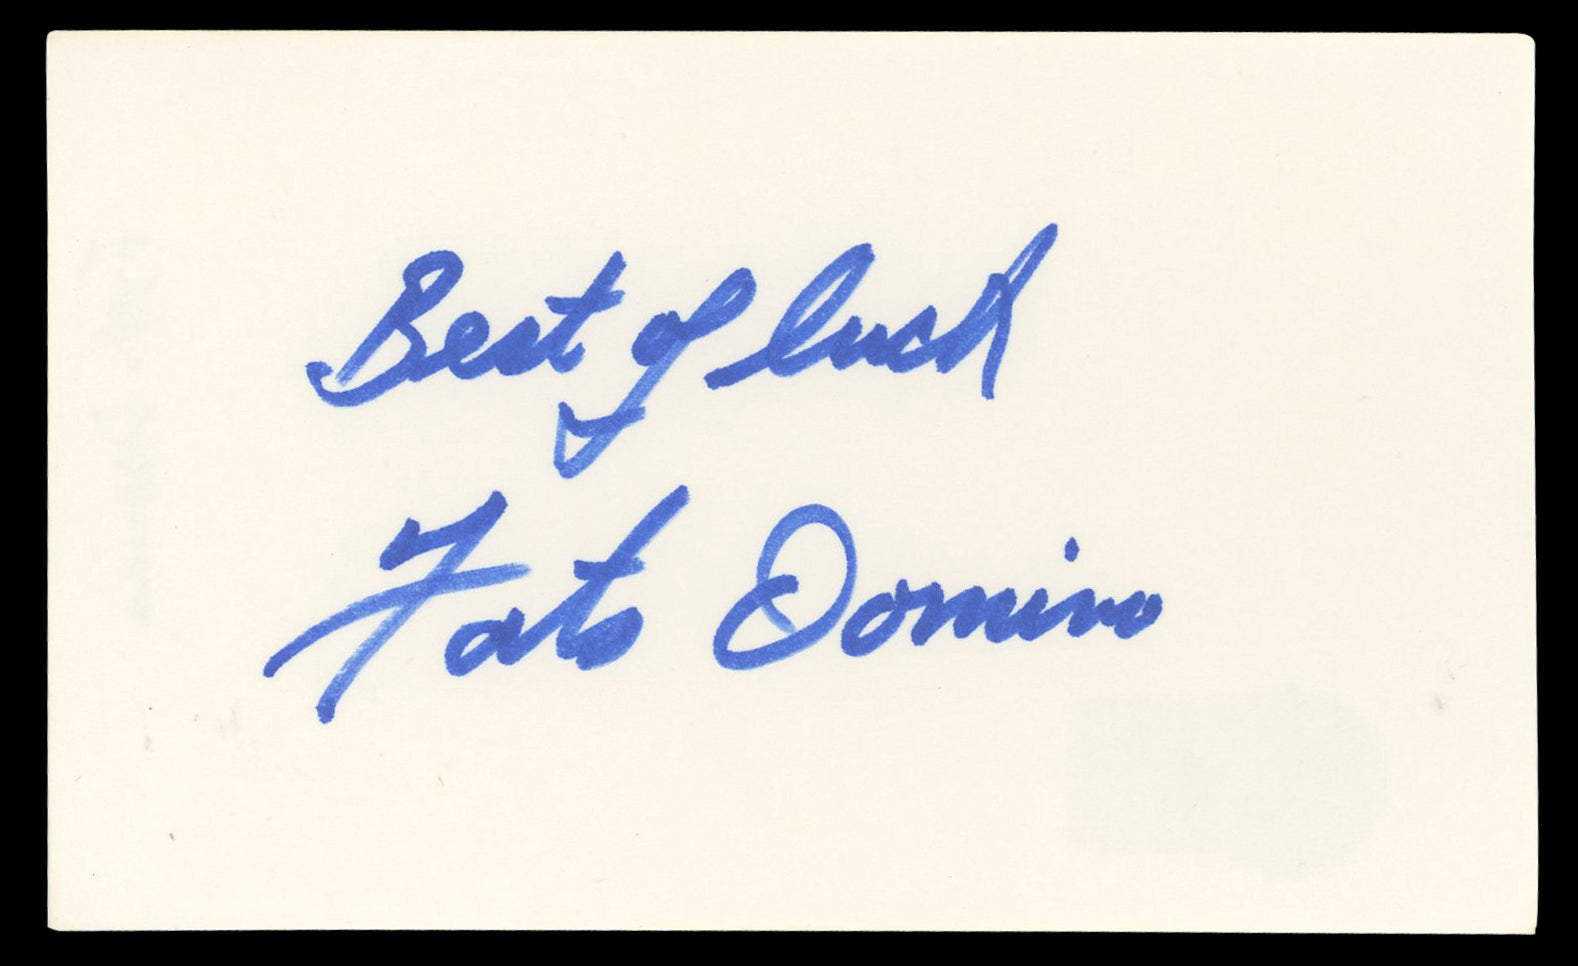 Best of luck
Fats Domino